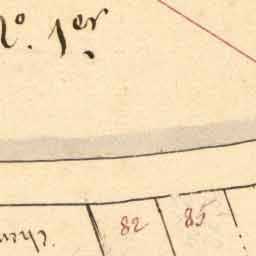 No. 1er
82 85